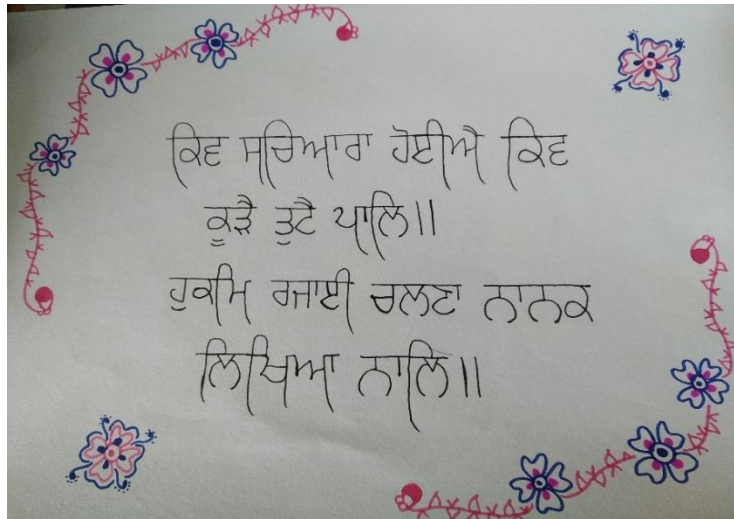 ਕਿਵ ਸਚਿਆਰਾ ਹੋਈਐ ਕਿਵ
ਕੂੜੈ ਤੁਟੈ ਪਾਲਿ॥
ਹੁਕਮਿ ਰਜਾਈ ਚਲਣਾ ਨਾਨਕ
ਲਿਖਿਆ ਨਾਲਿ॥